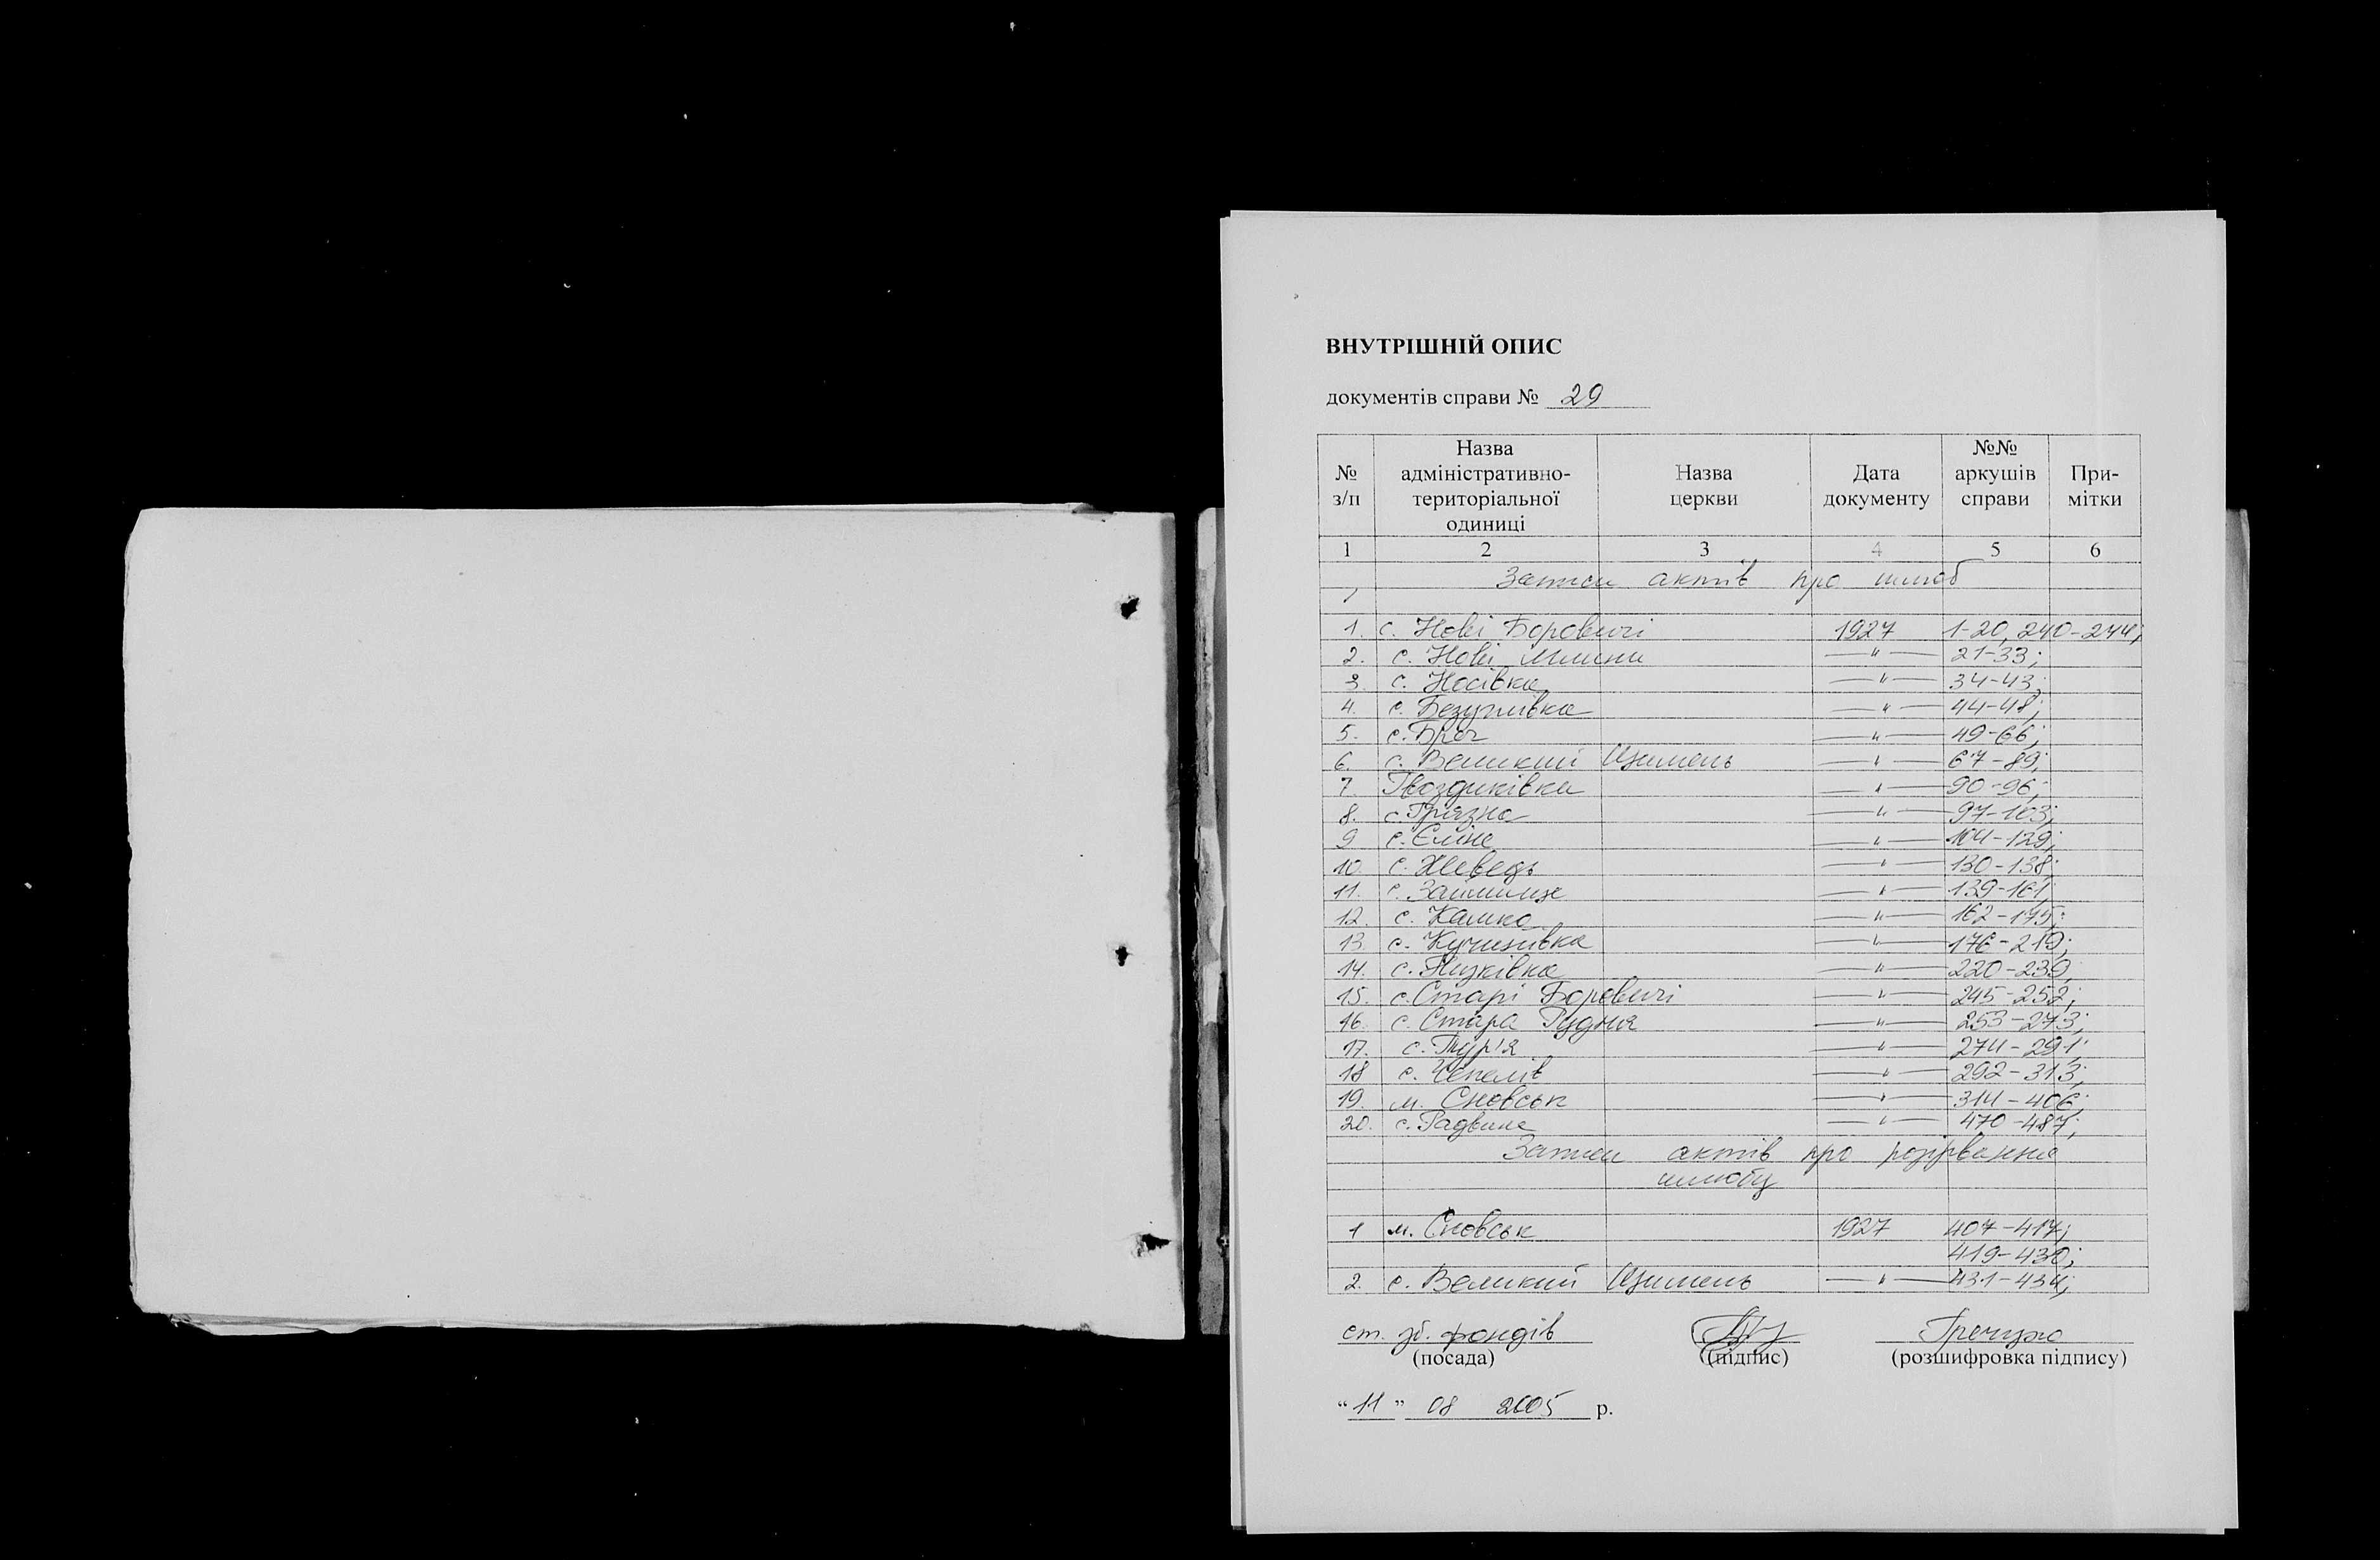 ВНУТРІШНІЙ ОПИС
документів справи № 29
№ з/п | Назва адміністративно-територіальної одиниці | Назва церкви | Дата документу | №№ аркушів справи | При-мітки
1 2 3 4 5 6
Записи актів про шлюб
1. с. Нові Боровичі 1927 1-20, 240-244;
2. с. Нові Млини —"— 21-33;
3. с. Носівка —"— 34-43;
4. с. Безуглівка —"— 44-48;
5. с. Бреч —"— 49-66;
6. с. Великий Щимель —"— 67-89;
7. Гвоздиківка —"— 90-96;
8. с. Грязна —"— 97-103;
9 с. Єліне —"— 104-129;
10. с. Жеведь —"— 130-138;
11. с. Займище —"— 139-161;
12. с. Камка —"— 162-175;
13. с. Кучинівка —"— 176-219;
14. с. Низківка —"— 220-239;
15. с. Старі Боровичі —"— 245-252;
16. с. Стара Рудня —"— 253-273;
17. с. Тур'я —"— 274-291;
18 с. Чепелів —"— 292-313;
19. м. Сновськ —"— 314-406;
20. с. Радвине —"— 470-487;
Записи актів про розірвання
шлюбу
1 м. Сновськ 1927 407-417;
419-430;
2. с. Великий Щимель —"— 431-434;
ст. зб. фондів Гречухо
(посада) (підпис) (розшифровка підпису)
“11” 08 2005 р.